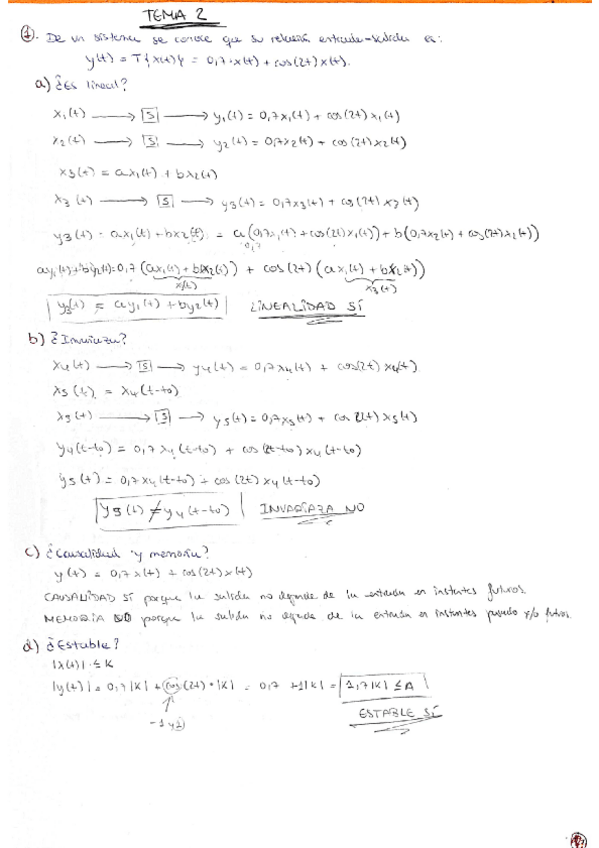 TEMA 2
①. De un sistema se conoce que su relación entrada-salida es:
y(t) = T{x(t)} = 0,7·x(t) + cos(2t)x(t).
a) ¿Es lineal?
x1(t) → S → y1(t) = 0,7x1(t) + cos(2t)x1(t)
x2(t) → S → y2(t) = 0,7x2(t) + cos(2t)x2(t)
x3(t) = ax1(t) + bx2(t)
x3(t) → S → y3(t) = 0,7x3(t) + cos(2t)x3(t)
y3(t) = ax1(t) + bx2(t) = a(0,7x1(t) + cos(2t)x1(t)) + b(0,7x2(t) + cos(2t)x2(t))
ay1(t)+by2(t)=0,7(ax1(t) + bx2(t)) + cos(2t)(ax1(t) + bx2(t))
x3(t)
y3(t) = ay1(t) + by2(t) LINEALIDAD SÍ
b) ¿Invariaza?
x4(t) → S → y4(t) = 0,7x4(t) + cos(2t)x4(t)
x5(t) = x4(t-t0)
x5(t) → S → y5(t) = 0,7x5(t) + cos(2t)x5(t)
y4(t-t0) = 0,7x4(t-t0) + cos(2t-t0)x4(t-t0)
y5(t) = 0,7x4(t-t0) + cos(2t)x4(t-t0)
y5(t) ≠ y4(t-t0) INVARIAZA NO
c) ¿Causalidad y memoria?
y(t) = 0,7x(t) + cos(2t)x(t)
CAUSALIDAD SÍ porque la salida no depende de la entrada en instantes futuros.
MEMORIA NO porque la salida no depende de la entrada en instantes pasado y/o futuros.
d) ¿Estable?
|x(t)| ≤ K
|y(t)| = 0,7|K| + cos(2t)·|K| = 0,7 +1|K| = 1,7|K| ≤ A
-1 y 1
ESTABLE SÍ